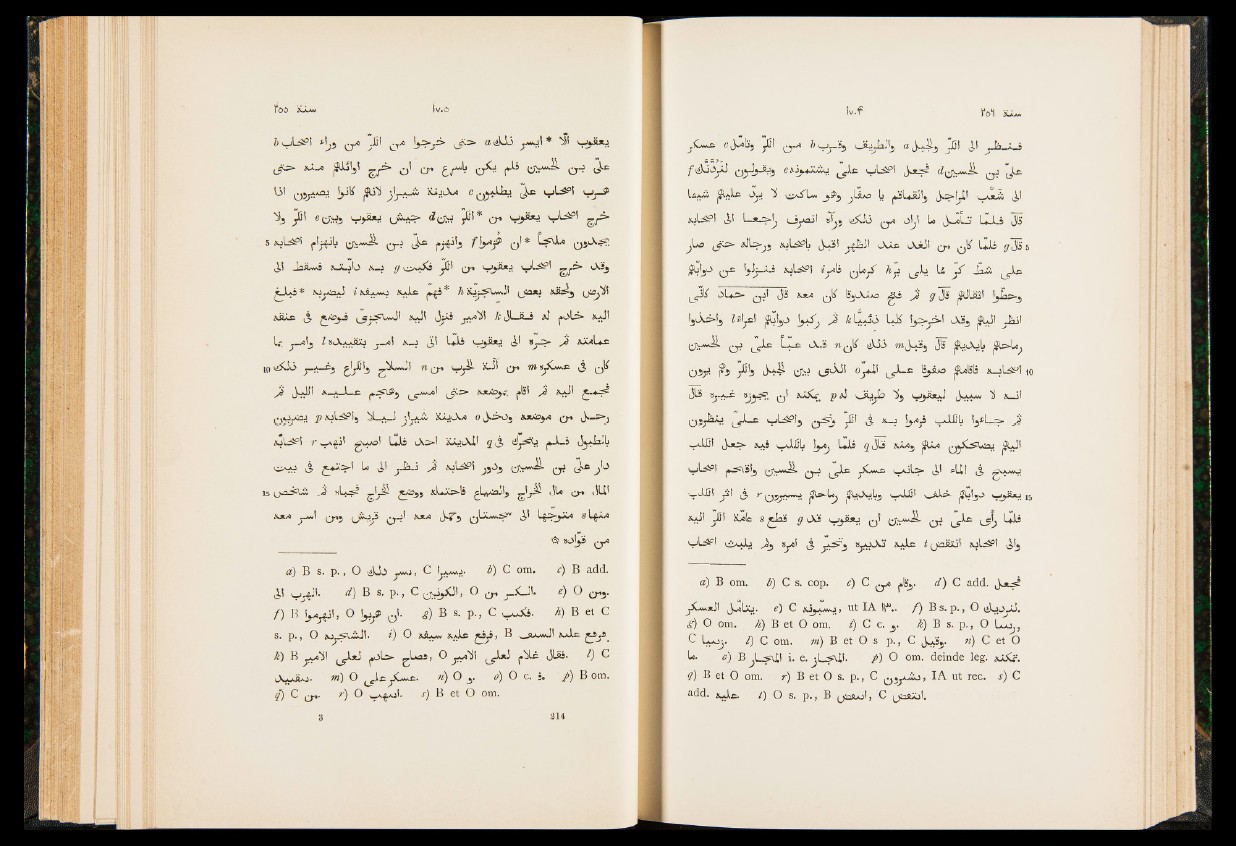 ١٧٠٤ سنة
فنظر الى الكرّ والجبل a والطريق وقرب b من الكرّ وتأمّل c عسكر
علىّ بن الحسين d فجعل اصحاب علىّ يشتمونه e ويقولون لنردّنّك f
الى شَعْب المراجل والقماقم يا صفّار وهو ساكت لا يردّ عليهم شيئا
قال فلمّا تأمّل ما اراد من ذلك ورآه انصرف راجعا الى اصحابه
5 قال g فلمّا كان من الغد عند الظهر اقبل باصحابه ورجاله حتى صار
على شطّ كرّ ممّا يلى برّ h كرمان فامر i اصحابه فنزلوا عن دوابّهم
وحطّوا اثقالهم قال g ثم فتح صندوقا كان معه قال ابن حماد كأنّى
انظر اليهم وقد اخرجوا كلبا ذئبيّا k ثم ركبوا دوابّهم اعراء l واخذوا
رماحهم بايديهم قال وقبل m ذلك كان n قد عبّأ علىّ بن الحسين
10 اصحابه فاقامهم صفوفا على الممرّ o الذى بين الجبل والكرّ وهم يرون
انه لا سبيل ليعقوب ولا طريق له p يمكنه ان يجوزه غيره قال
ثم جاءوا بالكلب فرموا به فى الكرّ ونحن واصحاب علىّ ينظرون
اليهم يضحكون منهم ومنه قال q فلمّا رموا بالكلب فيه جعل الكلب
يسبح فى الماء الى جانب عسكر علىّ بن الحسين واقتحم اصحاب
15 يعقوب دوابّهم خلف الكلب وبايديهم رماحهم يسيرون r فى اثر الكلب
فلمّا رأى علىّ بن الحسين ان يعقوب قد q قطع s عامّة الكرّ اليه
والى اصحابه انتقض t عليه تدبيره وتحيّر فى امره ولم يلبث اصحاب
a) B om. b) C s. cop. c) C وقام من. d) C add. فجعل
العسكر يتأمل. e) C ut IA. f) B s. p., O
g) O om. h) B et O om. i) C c. و. k) B s. p., O
C l) C om. m) B et O s p., C وقيل. n) C et O
ما. o) B i. e. p) O om. deinde leg. يمكنه.
q) B et O om. r) B et O s. p., C IA ut rec. s) C
add. عليه t) O s. p., B C انتقص.
سنة ٢٥٥ ١٧٠٥
يعقوب الّا * ايسر ذلك a حتى خرجوا من الكرّ من وراء اصحاب b
علىّ بن الحسين فلم يكن باسرع من ان خرج اوائلهم منه حتى
هرب اصحاب علىّ يطلبون c مدينة شيراز لانهم كانوا يصيرون اذا
خرج اصحاب يعقوب من *الكرّ بين d جيش يعقوب وبين e الكرّ ولا
5 يجدون ملجأ *ان هزموا f وانهزم علىّ بن الحسين بانهزام اصحابه
وقد خرج اصحاب يعقوب من الكرّ فكبت g به دابّته فسقط الى
الارض ولحقه بعض السجزيّة h *فهمّ عليه بسيفه i ليضربه *فبلغ
اليه خادم له فقال k الامير فنزل اليه السجزى فوضع فى عنقه
عمامته ثم جرّه الى يعقوب فلمّا اتى به امر بتقييده l وامر بما
10 كان فى عسكره m من آلة الحرب من n السلاح والكراع وغير ذلك
فجمع اليه ثم اقام بموضعه حتى امسى وهجم عليه الليل ثم
رحل من موضعه ودخل o مدينة شيراز ليلا واصحابه p يضربون
بالطبول فلم يتحرّك فى q المدينة احد فلمّا اصبح انهب r اصحابه
دار علىّ بن الحسين ودور اصحابه ثم نظر الى ما اجتمع فى بيت
15 المال من مال الخراج والضياع فاحتمله ووضع الخراج فجباه ثم شخص
منها s متوجّها الى سجستان وحمل معه ابن قريش ومن اسر معه
من قوّاده ۞
a) B s. p., O C يسيرا. b) C om. c) B add.
الى الهرب. d) B s. p., C O من الكر. e) O ومن.
f) B انهزموا, O ان هربوا. g) B s. p., C h) B et C
s. p., O i) O فرفع عليه سيفه, B
k) B O فقال غلام لعلى الامير. l) C
m) O عسكر على. n) O و. o) O c. ف. p) B om.
q) C من. r) O s) B et O om.
3 214